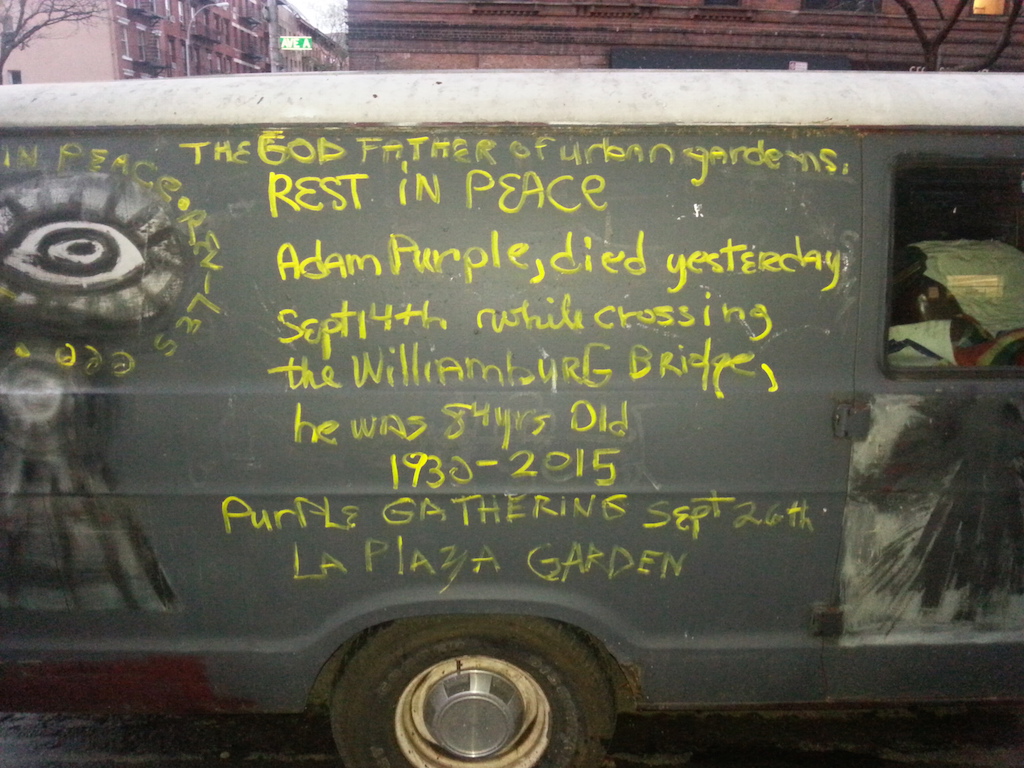 AVE A
IN PEACE.
THE GOD FATHER of urban gardens.
REST IN PEACE
Adam Purple, died yesterday
Sept 14th while crossing
the WilliambURG Bridge,
he was 84yrs Old
1930-2015
PurPLE GATHERING Sept 26th
LA PlAZA GARDEN